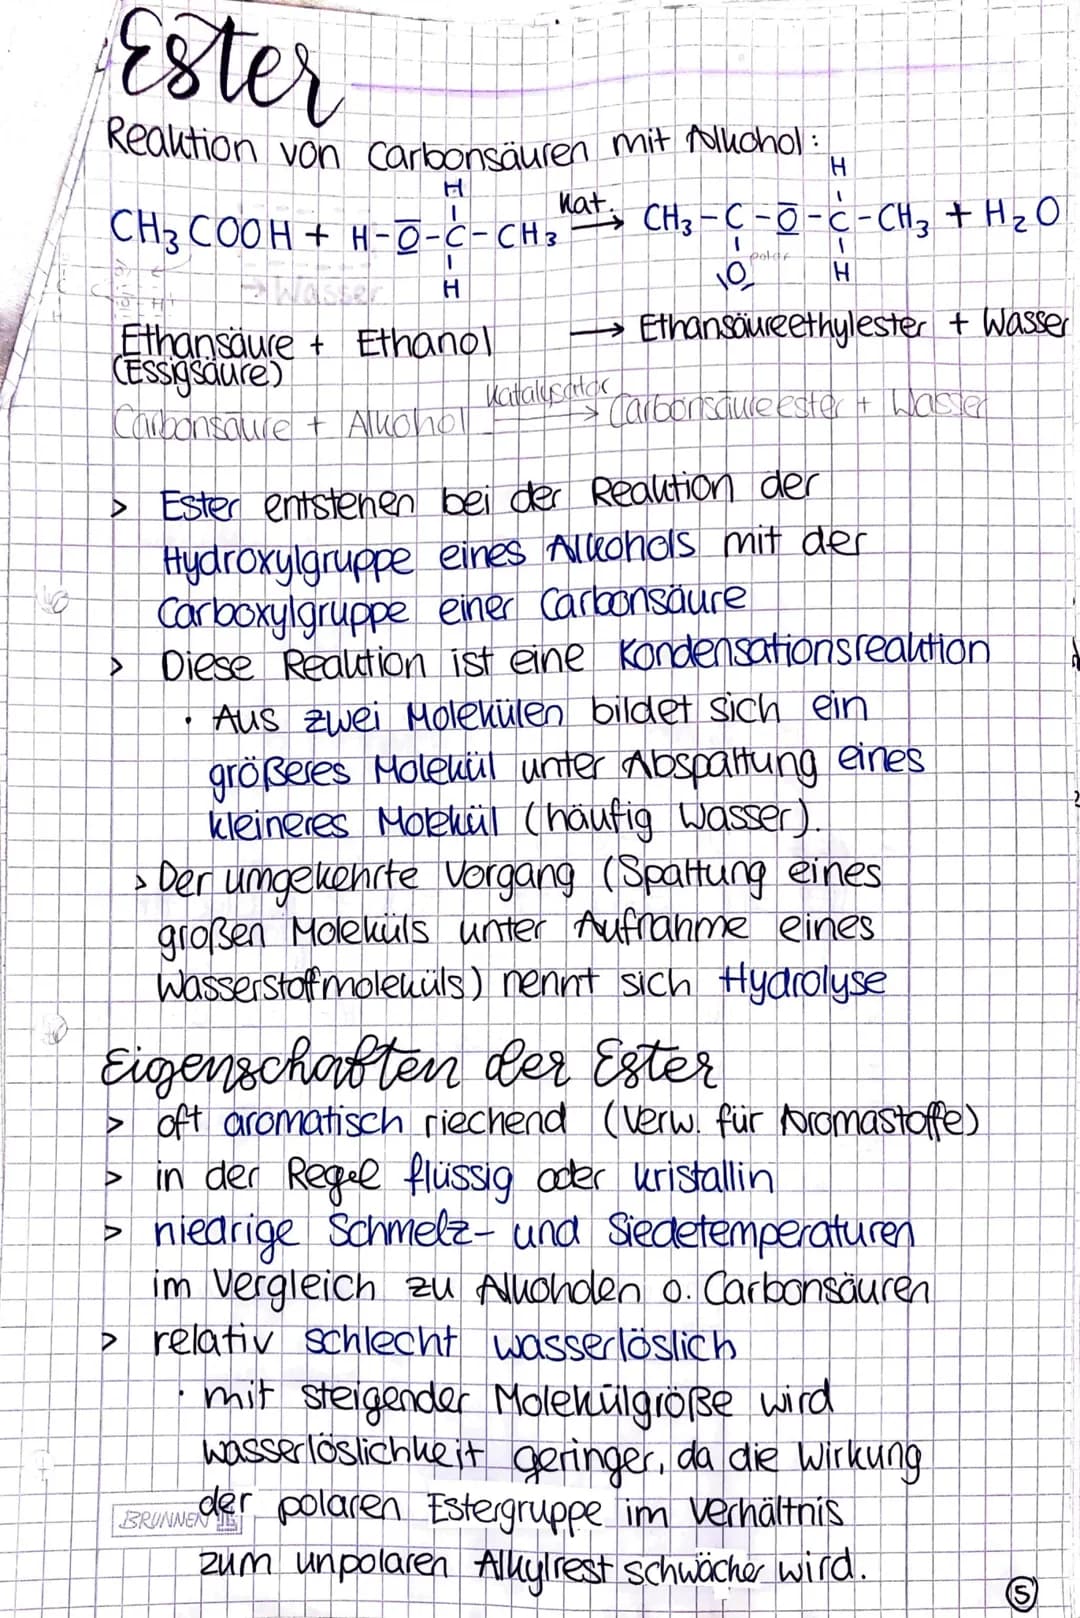 Ester
Reaktion von Carbonsäuren mit Alkohol:
H H
CH3COOH + H-O-C-CH3 Kat. → CH3-C-O-C-CH3 + H2O
polar
H O H
→ Wasser
Ethansäure + Ethanol → Ethansäureethylester + Wasser
(Essigsäure)
Katalysator
Carbonsäure + Alkohol → Carbonsäureester + Wasser
> Ester entstehen bei der Reaktion der
Hydroxylgruppe eines Alkohols mit der
Carboxylgruppe einer Carbonsäure
> Diese Reaktion ist eine Kondensationsreaktion
• Aus zwei Molekülen bildet sich ein
größeres Molekül unter Abspaltung eines
kleineres Molekül (häufig Wasser).
> Der umgekehrte Vorgang (Spaltung eines
großen Moleküls unter Aufnahme eines
Wasserstoffmoleküls) nennt sich Hydrolyse
Eigenschaften der Ester
> oft aromatisch riechend (Verw. für Aromastoffe)
> in der Regel flüssig oder kristallin
> niedrige Schmelz- und Siedetemperaturen
im Vergleich zu Alkoholen o. Carbonsäuren
> relativ schlecht wasserlöslich
• mit steigender Molekülgröße wird
wasserlöslichkeit geringer, da die Wirkung
der polaren Estergruppe im Verhältnis
BRUNNEN
zum unpolaren Alkylrest schwächer wird.
5